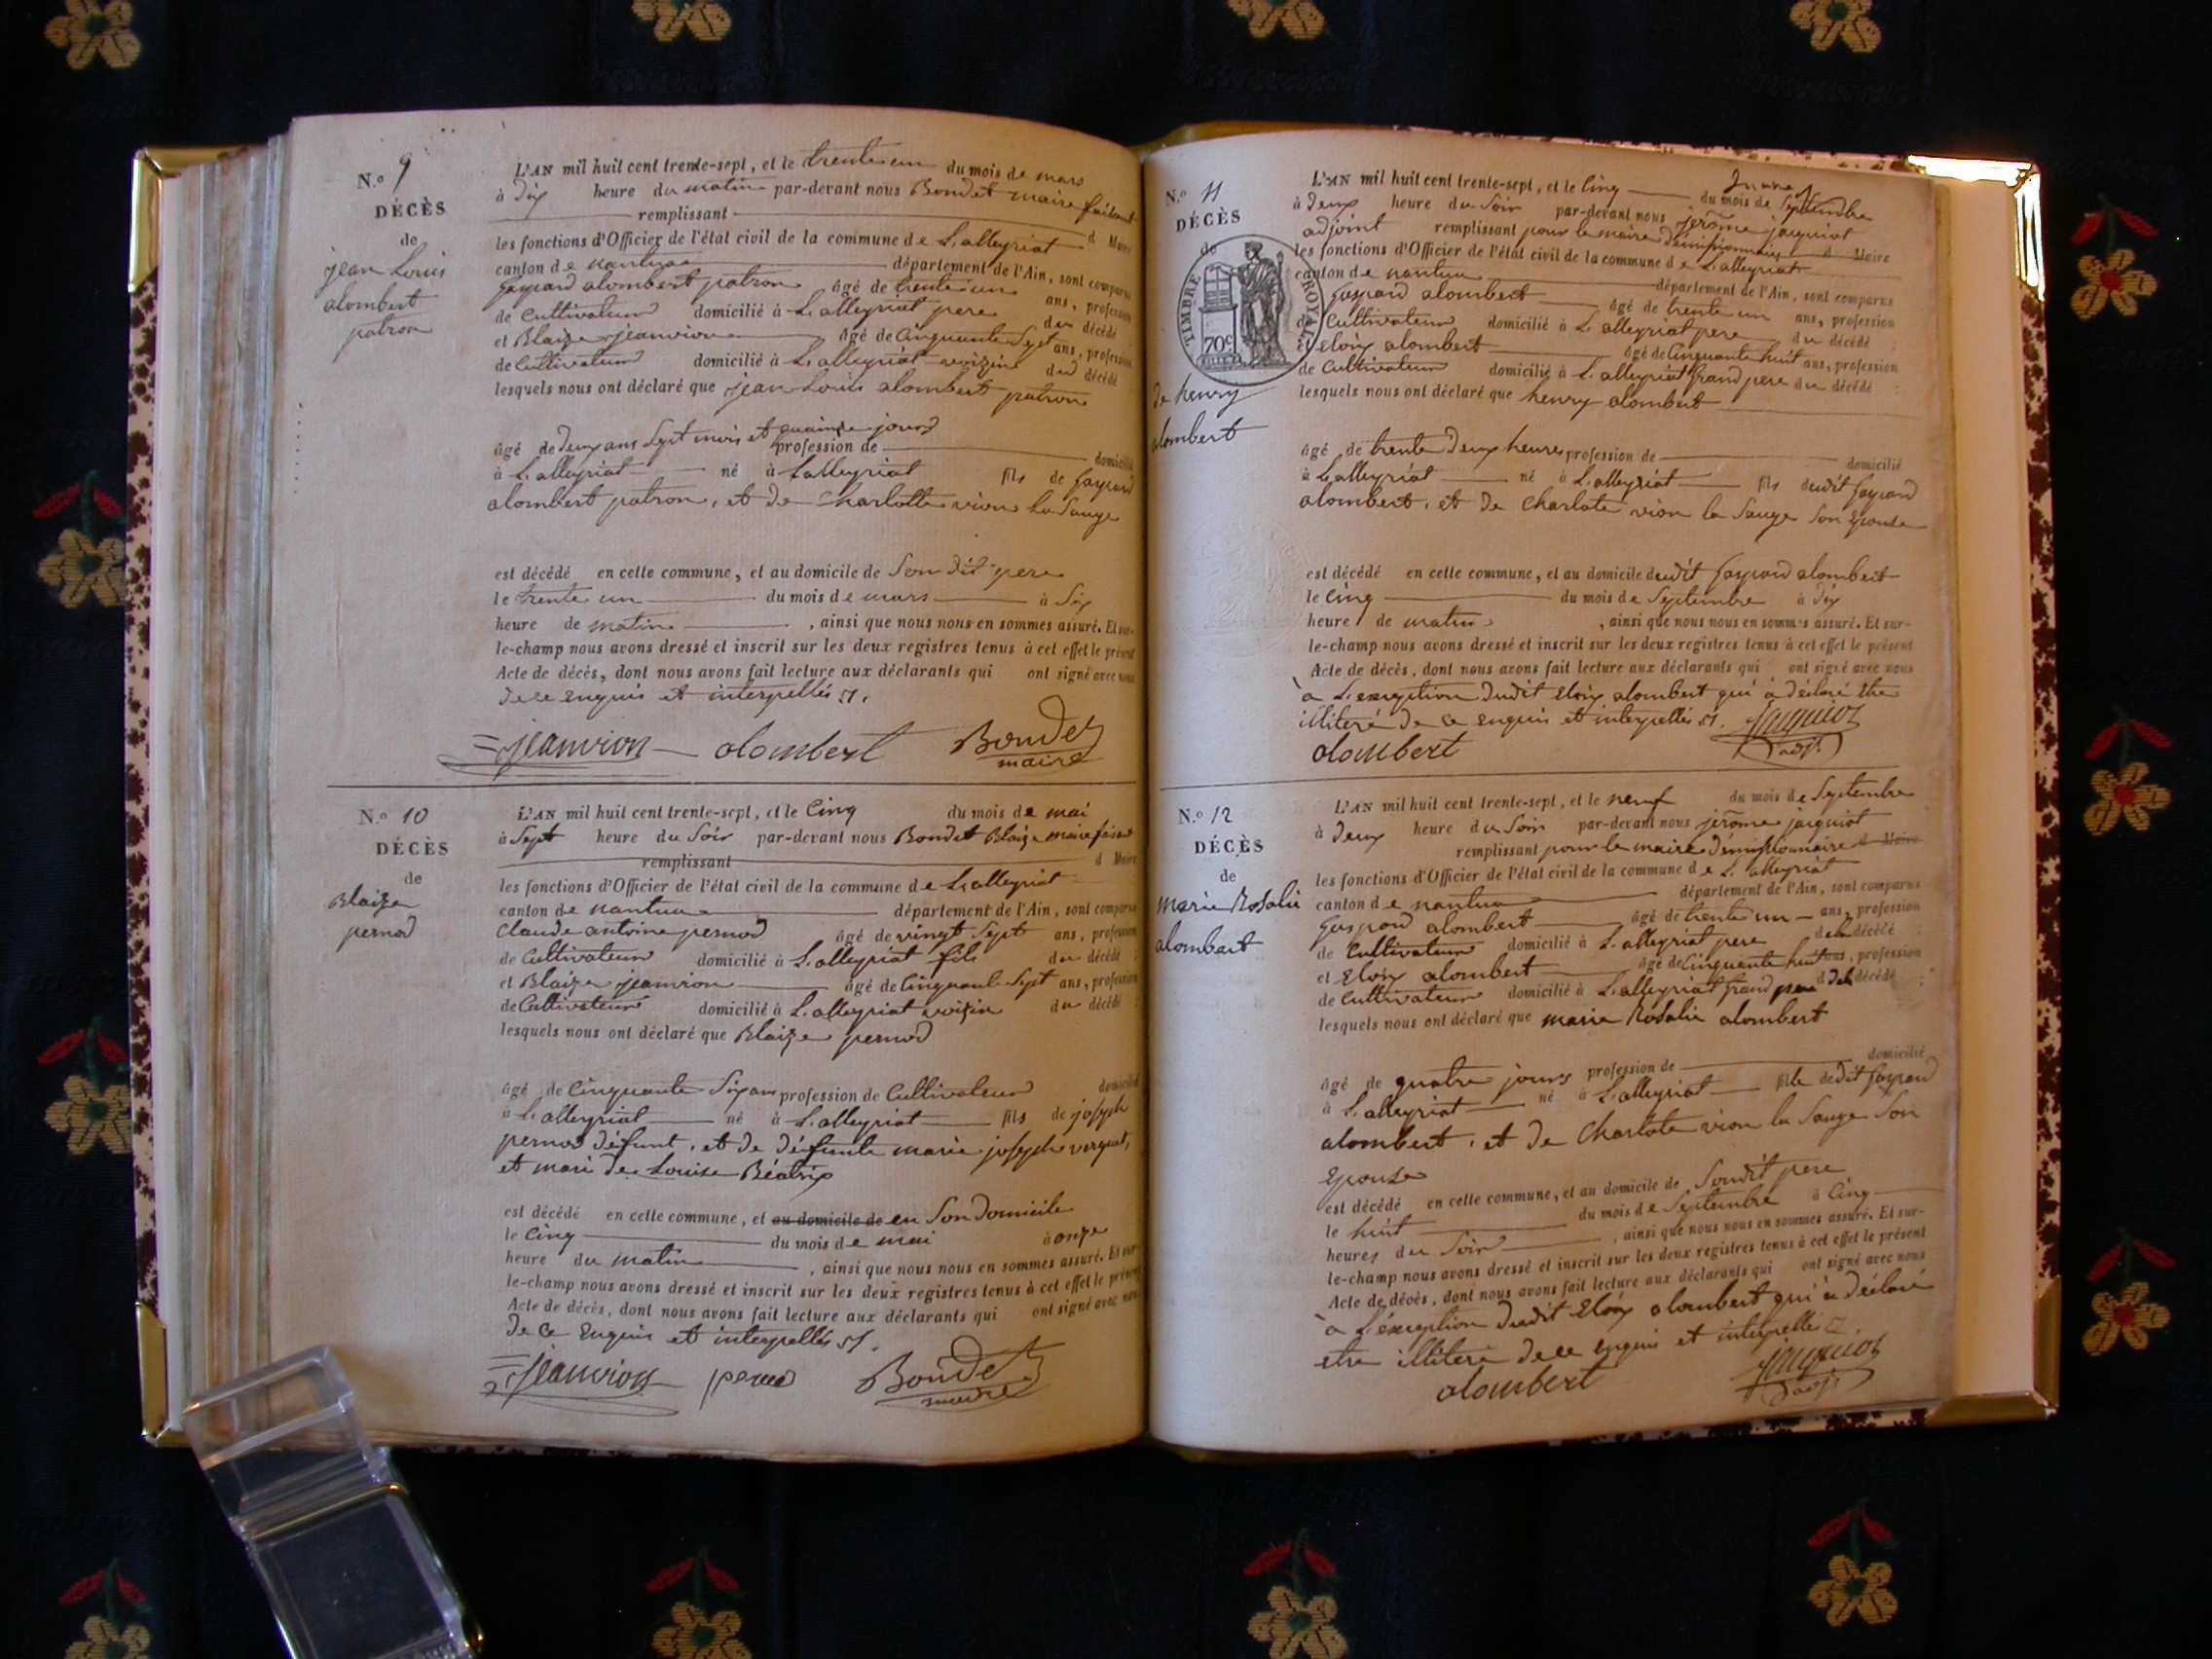 N.o 9
DÉCÈS
de
jean Louis
alombert
patron
L'AN mil huit cent trente-sept, et le trente un du mois de mars
à dix heure du matin par-devant nous Bondet maire faisant
remplissant d Maire
les fonctions d'Officier de l'état civil de la commune de L'alleyriat
canton de nantua département de l'Ain, sont comparus
gaspard alombert patron âgé de trente un ans, profession
de Cultivateur domicilié à L'alleyriat pere du décédé
et Blaize jeanvion âgé de Cinquante Sept ans, profession
de Cultivateur domicilié à L'alleyriat voizin du décédé
lesquels nous ont déclaré que jean Louis alombert patron
âgé de deux ans Sept mois et jours profession de domicilié
à L'alleyriat né à Lalleyriat fils de gaspard
alombert patron, et de charlotte vion la Sauge
est décédé en cette commune, et au domicile de Son dit pere
le trente un du mois de mars à Six
heure de matin , ainsi que nous nous en sommes assuré. Et sur-
le-champ nous avons dressé et inscrit sur les deux registres tenus à cet effet le présent
Acte de décès, dont nous avons fait lecture aux déclarants qui ont signé avec nous
de ce enquis et interpellés
jeanvion alombert Bondet
maire
N.o 10
DÉCÈS
de
Blaize
pernod
L'AN mil huit cent trente-sept, et le Cinq du mois de mai
à Sept heure du Soir par-devant nous Bondet Blaize maire faisant
remplissant d Maire
les fonctions d'Officier de l'état civil de la commune de L'alleyriat
canton de nantua département de l'Ain, sont comparus
Claude antoine pernod âgé de vingt Sept ans, profession
de Cultivateur domicilié à L'alleyriat fils du décédé :
et Blaize jeanvion âgé de Cinquante Sept ans, profession
de Cultivateur domicilié à L'alleyriat voizin du décédé :
lesquels nous ont déclaré que Blaize pernod
âgé de Cinquante Six ans profession de Cultivateur domicilié
à L'alleyriat né à L'alleyriat fils de joseph
pernod défunt, et de défunte marie josephe verguet,
et mari de Louise Béatrix
est décédé en cette commune, et au domicile de en Son domicile
le Cinq du mois de mai à onze
heure du matin , ainsi que nous nous en sommes assuré. Et sur-
le-champ nous avons dressé et inscrit sur les deux registres tenus à cet effet le présent
Acte de décès, dont nous avons fait lecture aux déclarants qui ont signé avec nous
de ce enquis et interpellés
jeanvion pernod Bondet
maire
N.o 11
DÉCÈS
de
TIMBRE ROYAL
70c
de henry
alombert
L'AN mil huit cent trente-sept, et le Cinq du mois de Septembre
à deux heure du Soir par-devant nous jerôme jacquiot
adjoint remplissant pour le maire démissionnaire d Maire
les fonctions d'Officier de l'état civil de la commune de L'alleyriat
canton de nantua département de l'Ain, sont comparus
gaspard alombert âgé de trente un ans, profession
de Cultivateur domicilié à L'alleyriat pere du décédé :
et eloix alombert âgé de Cinquante huit ans, profession
de Cultivateur domicilié à L'alleyriat grand pere du décédé :
lesquels nous ont déclaré que henry alombert
âgé de trente deux heures profession de domicilié
à L'alleyriat né à L'alleyriat fils dudit gaspard
alombert, et de charlote vion la Sauge Son Epouse
est décédé en cette commune, et au domicile dudit gaspard alombert
le Cinq du mois de Septembre à dix
heure de matin , ainsi que nous nous en sommes assuré. Et sur-
le-champ nous avons dressé et inscrit sur les deux registres tenus à cet effet le présent
Acte de décès, dont nous avons fait lecture aux déclarants qui ont signé avec nous
à L'exception dudit eloix alombert qui à déclaré etre
illiteré de ce enquis et interpellés jacquiot
alombert adjt
N.o 12
DÉCÈS
de
marie Rosalie
alombert
L'AN mil huit cent trente-sept, et le neuf du mois de Septembre
à deux heure du Soir par-devant nous jerôme jacquiot
remplissant pour le maire démissionnaire d Maire
les fonctions d'Officier de l'état civil de la commune de L'alleyriat
canton de nantua département de l'Ain, sont comparus
gaspard alombert âgé de trente un ans, profession
de Cultivateur domicilié à L'alleyriat pere de la décédé :
et Eloix alombert âgé de Cinquante huit ans, profession
de Cultivateur domicilié à L'alleyriat grand pere de la décédé :
lesquels nous ont déclaré que marie Rosalie alombert
âgé de quatre jours profession de domicilié
à L'alleyriat né à L'alleyriat fille dedit gaspard
alombert, et de Charlote vion la Sauge Son
Epouse
est décédé en cette commune, et au domicile de Sondit pere
le huit du mois de Septembre à Cinq
heures du Soir , ainsi que nous nous en sommes assuré. Et sur-
le-champ nous avons dressé et inscrit sur les deux registres tenus à cet effet le présent
Acte de décès, dont nous avons fait lecture aux déclarants qui ont signé avec nous
à L'exception dudit Eloix alombert qui à déclaré
etre illiteré de ce enquis et interpellés
alombert jacquiot
adjt